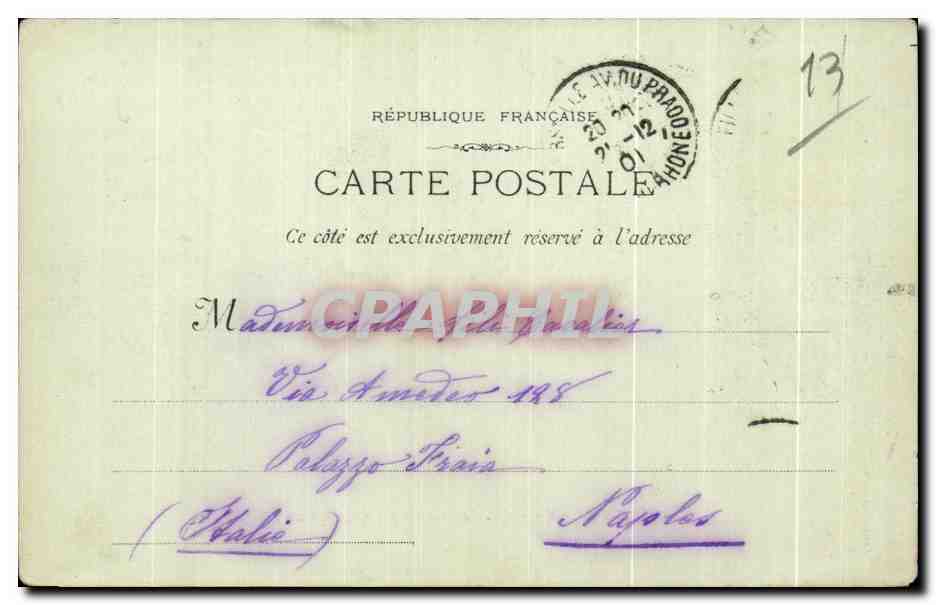 13
AV. DU PRADO
20
-12
01
RÉPUBLIQUE FRANÇAISE
CARTE POSTALE
Ce côté est exclusivement réservé à l'adresse
CPAPHIL
Mademoiselle
Via Amedeo 128
Palazzo Fraia
(Italie) Naples